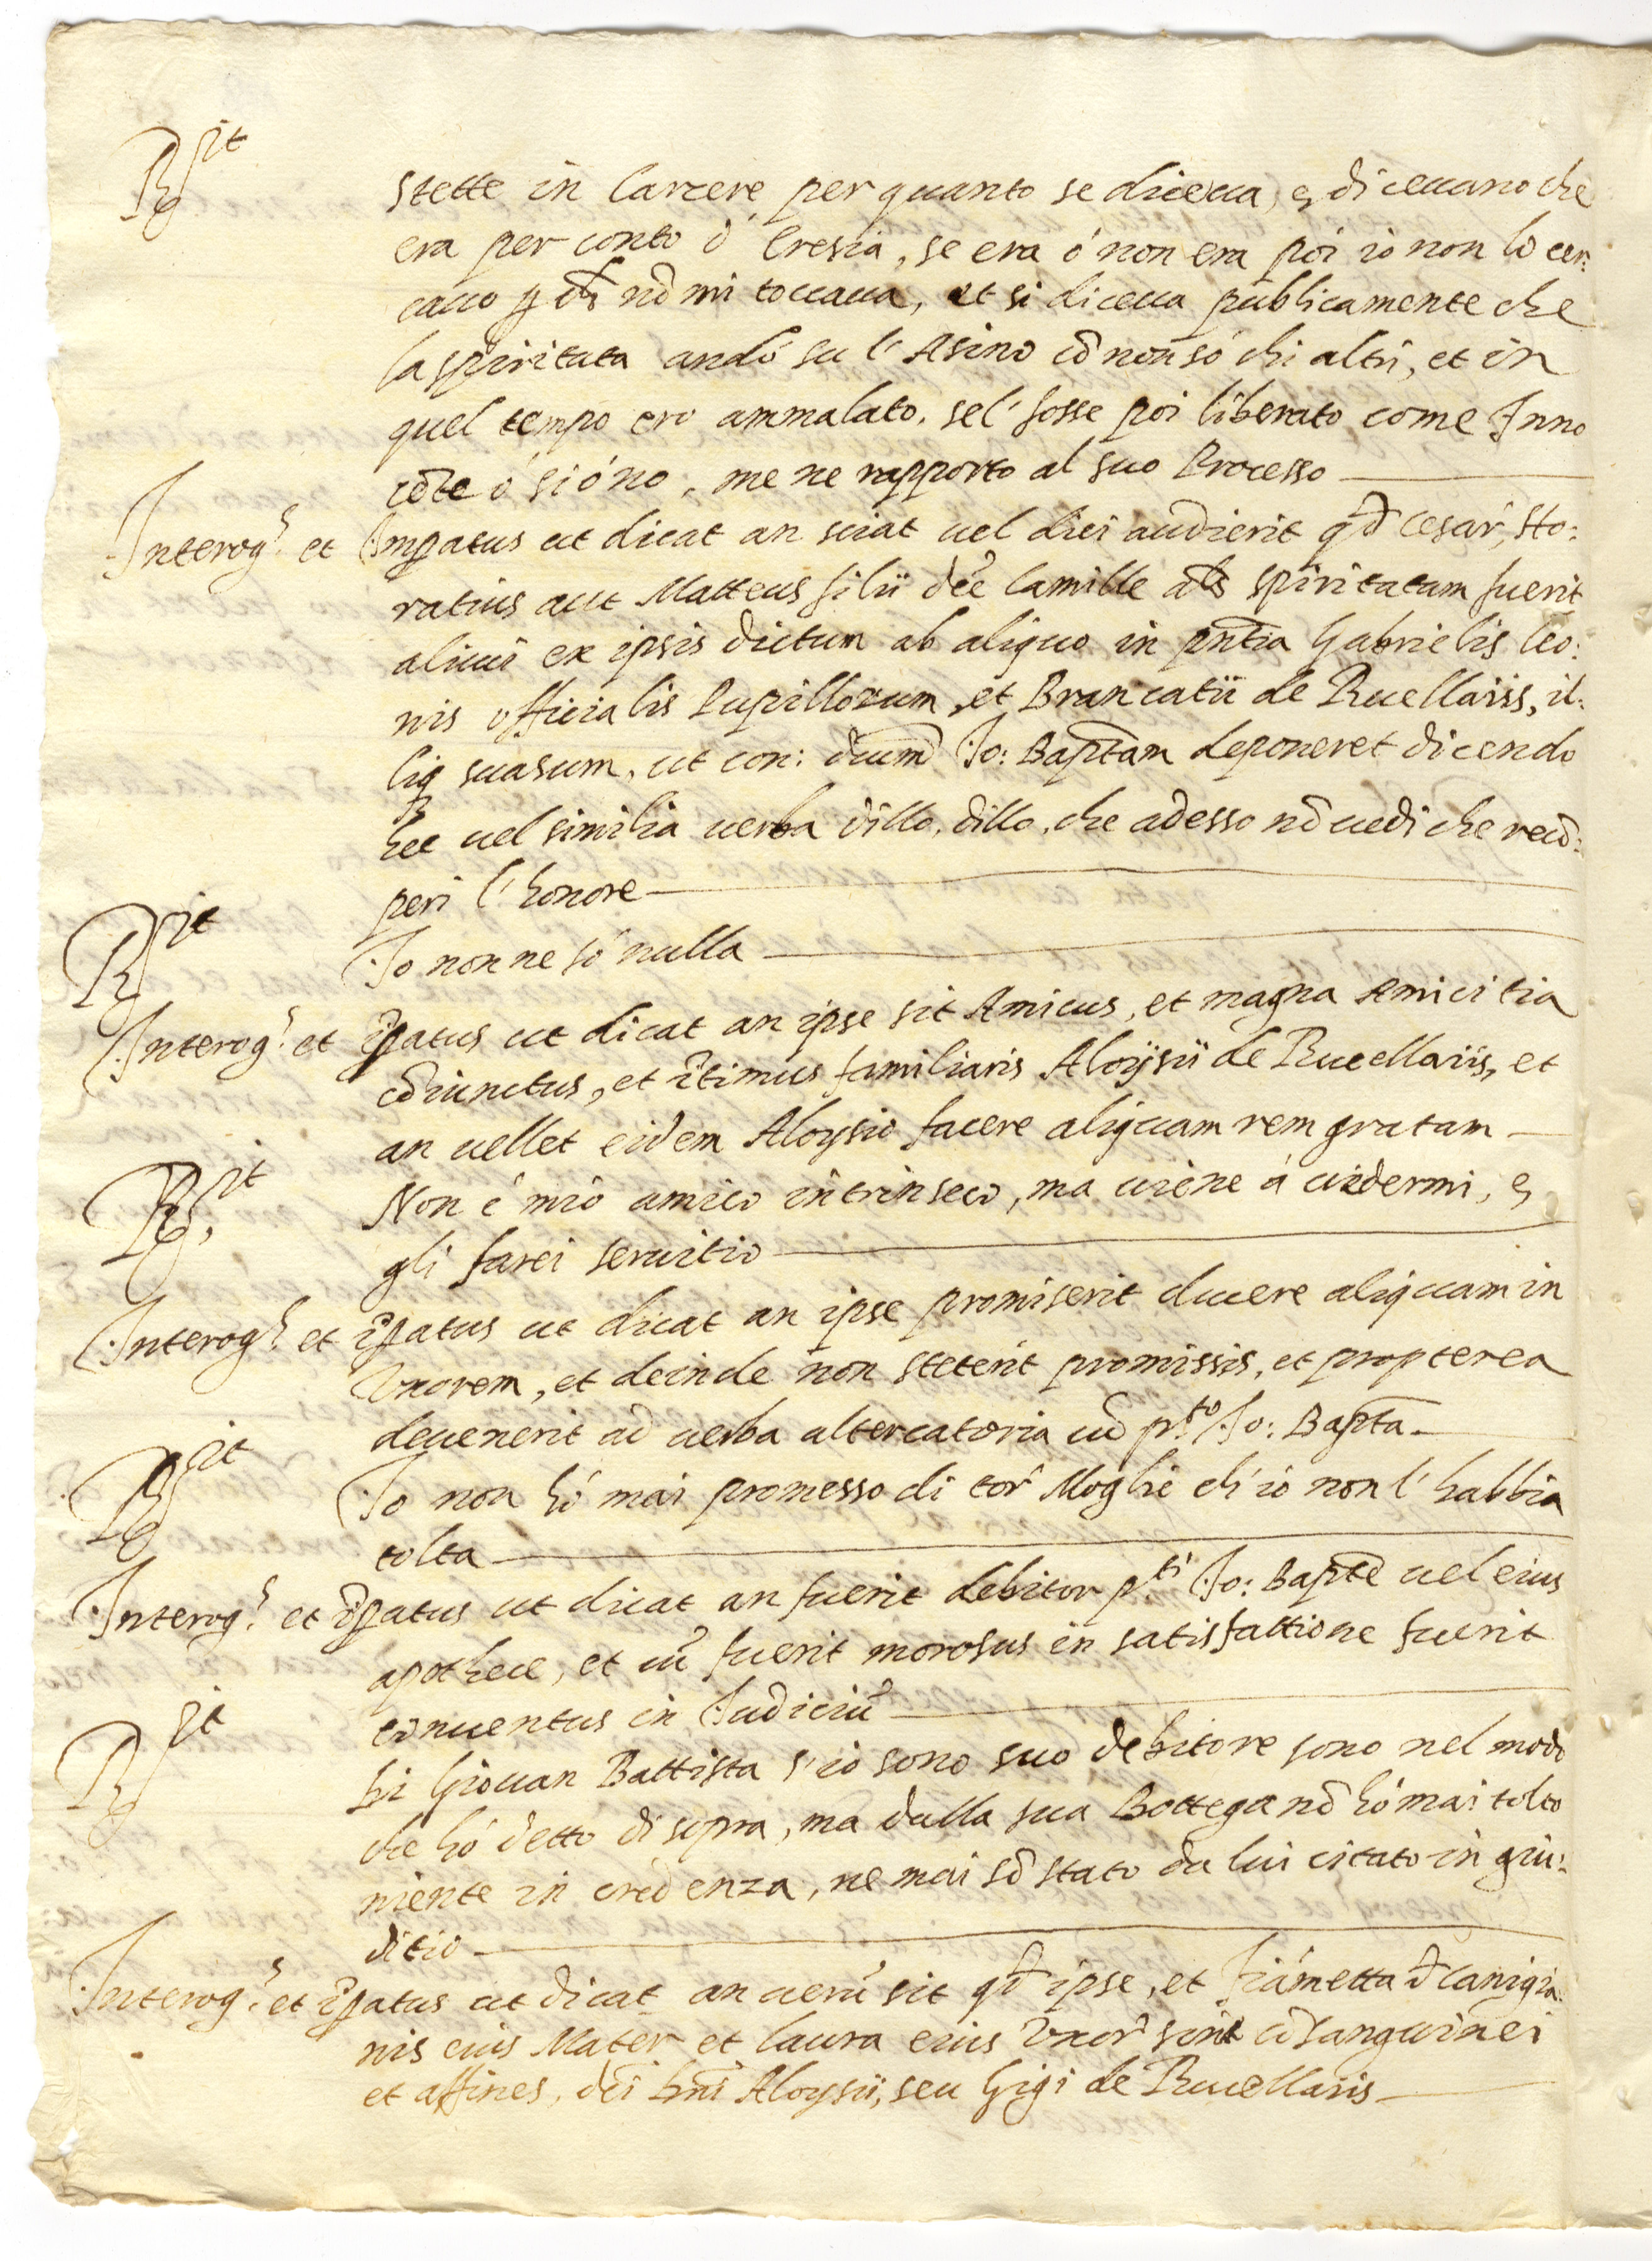 R.it stette in Carcere per quanto se diceua, e, diceuano che
era per conto d' Eresia, se era ó non era poi io non lo cer:
cauo p ch nõ mi toccaua, et si diceua publicamente che
la spiritata andó su l' Asino cõ non só chi altri, et in
quel tempo ero ammalato. sel' fosse poi liberato come Inno
cẽte ó si ó no, me ne rapporto al suo Processo
Interog.s et Impatus ut dicat an sciat uel dici audierit qd Cesar, Ho:
ratius aut Matteus filii dce Camille als spiritatam fuerit
alicui ex ipsis dictum ab aliquo in pntia Gabrielis Leo:
nis officialis Pupillorum, et Brancatii de Rucellaiis, il:
liq suasum, ut con: dictum Jo: Baptam deponeret dicendo
hec uel similia uerba dillo, dillo, che adesso nõ uedi che recũ:
peri l' honore
R.it Io non ne só nulla
Interog.s et ipatus ut dicat an ipse sit Amicus, et magna Amicitia
cõiunctus, et ĩtimus familiaris Aloysii de Rucellaiis, et
an uellet eidem Aloysio facere aliquam rem gratam
R.it Non é mio amico intrinseco, ma uiene á uedermi, e,
gli farei seruitio
Interog.s et ipatus ut dicat an ipse promiserit ducere aliquam in
Vxorem, et deinde non steterit promissis, et propterea
deuenerit ad uerba altercatoria cũ p.to Jo: Bapta
R.it Io non hó mai promesso di tor Moglie ch' io non l' habbia
tolta
Interog.s et ipatus ut dicat an fuerit debitor p.ti Jo: Bapte uel eius
apothece, et cũ fuerit morosus in satisfattione fuerit
conuentus in Judiciũ
R.it Di Giouan Battista s' io sono suo debitore sono nel modo
che hó detto di sopra, ma dalla sua Bottega nõ hó mai tolto
niente in credenza, ne mai sõ stato da lui citato in giu:
ditio
Interog.s et ipatus ut dicat an uerũ sit qd ipse, et Fiametta d Canigia:
nis eius Mater et Laura eius Vxor sint cõsanguinei
et affines, dci dni Aloysii, seu Gigi de Rucellaiis